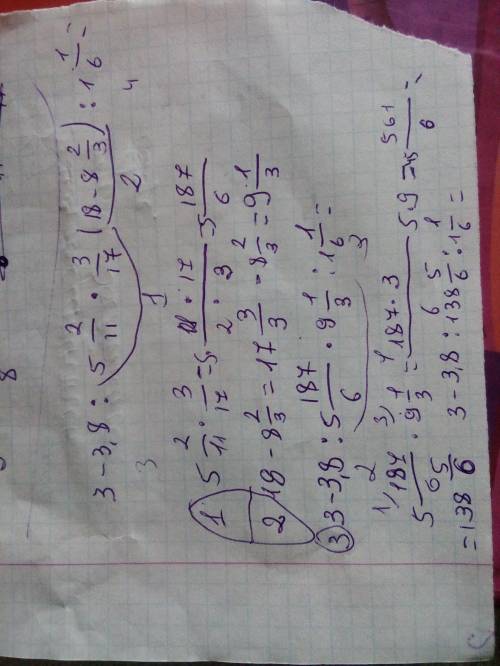 8
3 - 3,8 : 5 2/11 · 3/17 (18 - 8 2/3) : 1 1/6 =
3 1 2 4
1 5 2/11 · 3/17 = 5 11 · 17 / 2 · 3 5 187/6
2 18 - 8 2/3 = 17 3/3 - 8 2/3 = 9 1/3
3 3 - 3,8 : 5 187/6 · 9 1/3 : 1 1/6 =
2 3
1) 5 187/6 · 9 1/3 = 187 · 3 / 5 · 9 = 561/6 =
= 138 5/6 3 - 3,8 : 138 5/6 : 1 1/6 =